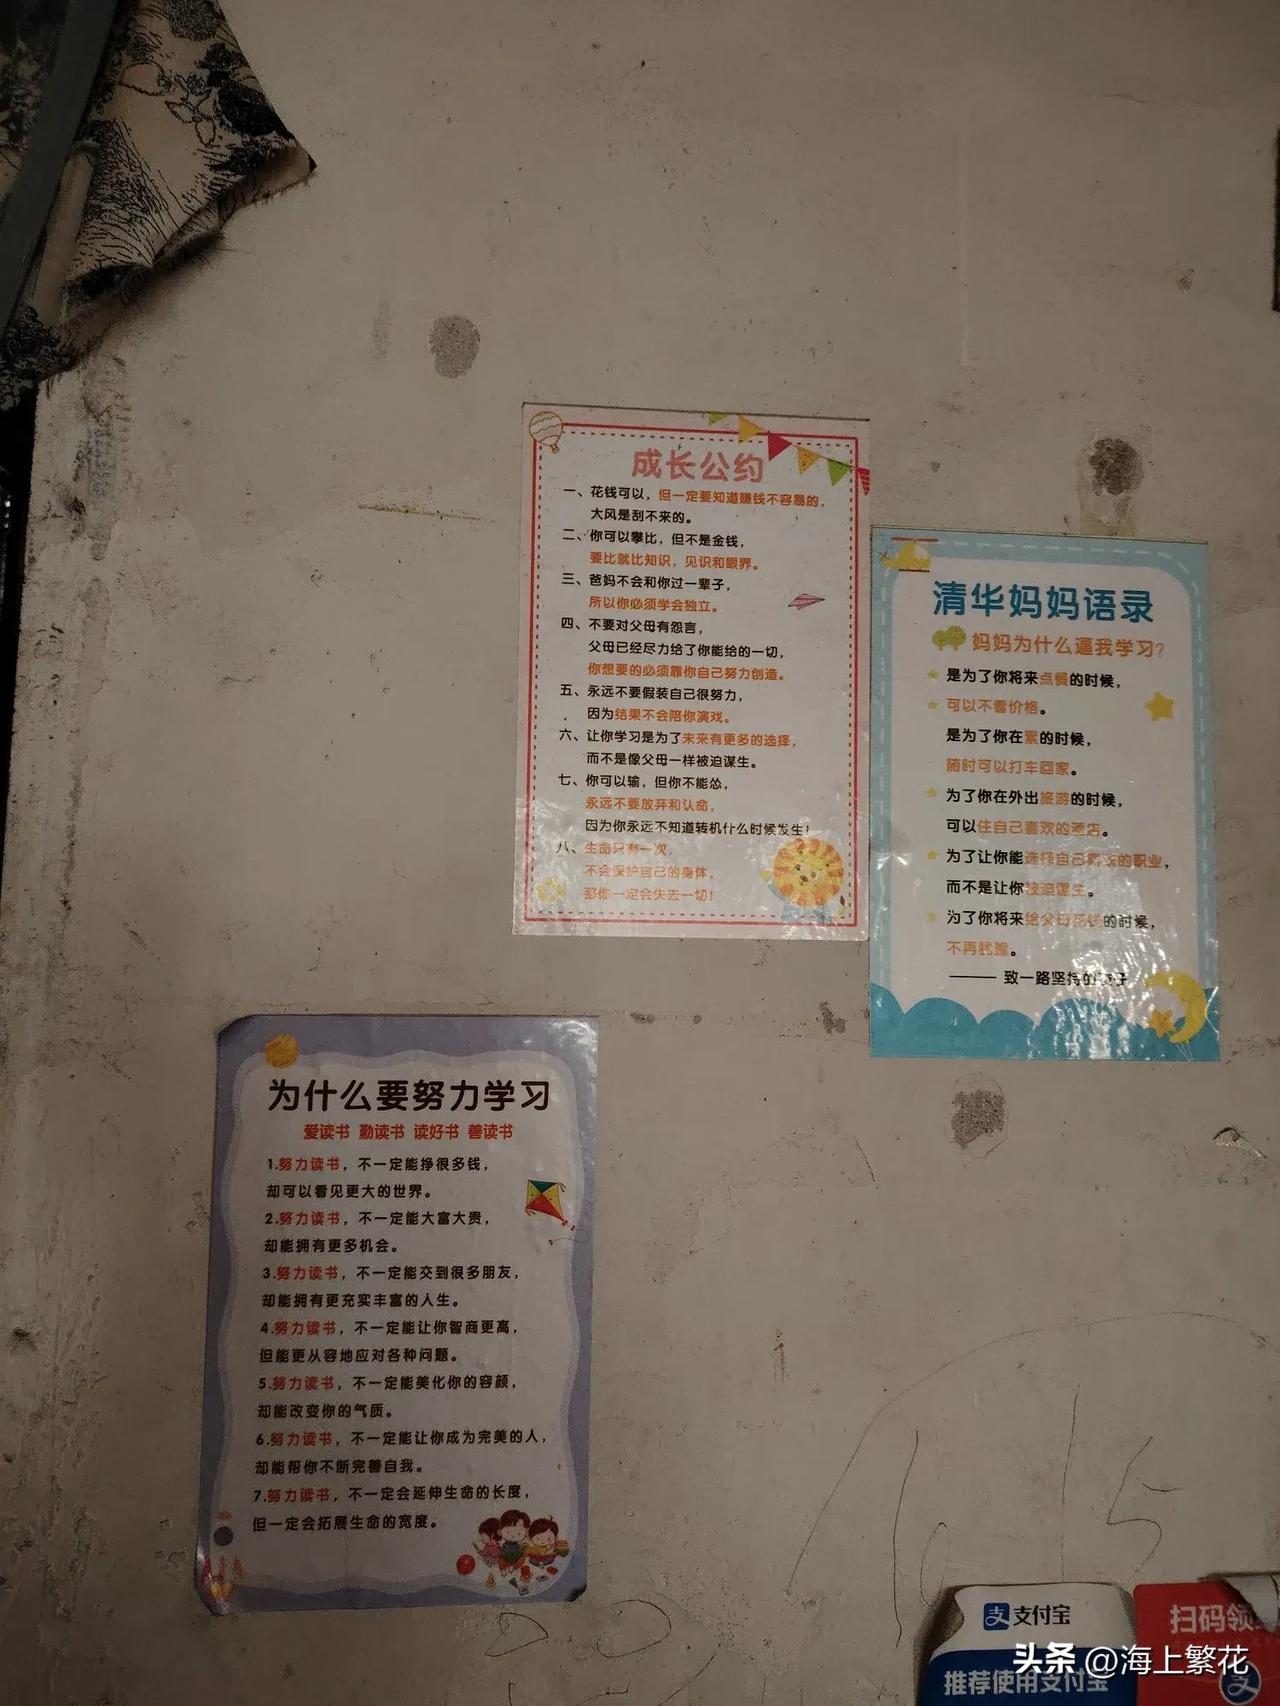 成长公约
一、花钱可以，但一定要知道赚钱不容易的，
大风是刮不来的。
二、你可以攀比，但不是金钱，
要比就比知识，见识和眼界。
三、爸妈不会和你过一辈子，
所以你必须学会独立。
四、不要对父母有怨言，
父母已经尽力给了你能给的一切，
你想要的必须靠你自己努力创造。
五、永远不要假装自己很努力，
因为结果不会陪你演戏。
六、让你学习是为了未来有更多的选择，
而不是像父母一样被迫谋生。
七、你可以输，但你不能怂，
永远不要放弃和认命，
因为你永远不知道转机什么时候发生！
八、生命只有一次，
不会保护自己的身体，
那你一定会失去一切！
清华妈妈语录
妈妈为什么逼我学习？
是为了你将来点餐的时候，
可以不看价格。
是为了你在累的时候，
随时可以打车回家。
为了你在外出旅游的时候，
可以住自己喜欢的酒店。
为了让你能选择自己喜欢的职业，
而不是让你被迫谋生。
为了你将来给父母花钱的时候，
不再犹豫。
—— 致一路坚持的孩子
为什么要努力学习
爱读书 勤读书 读好书 善读书
1.努力读书，不一定能挣很多钱，
却可以看见更大的世界。
2.努力读书，不一定能大富大贵，
却能拥有更多机会。
3.努力读书，不一定能交到很多朋友，
却能拥有更充实丰富的人生。
4.努力读书，不一定能让你智商更高，
但能更从容地应对各种问题。
5.努力读书，不一定能美化你的容颜，
却能改变你的气质。
6.努力读书，不一定能让你成为完美的人，
却能帮你不断完善自我。
7.努力读书，不一定会延伸生命的长度，
但一定会拓展生命的宽度。
支付宝
推荐使用支付宝
扫码领
头条 @海上繁花